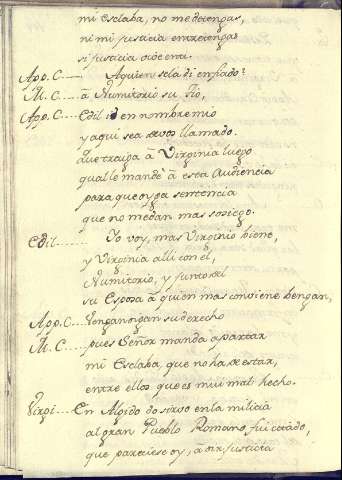 mi Esclaba, no me detengas,
ni mi justicia entretengas
si justicia side enti.
App. C.---- Aquien se la di en fiado?
M. C.---- â Numitorio su tio,
App. C.---- Edil id en nombre mio
y aqui sea llamado.
que traiga â Virginia luego
qual le mandè â esta Audiencia
para que oyga sentencia
que no me dan mas sosiego.
Edil.---- Io voy, mas Virginio biene,
y Virginia alli con el,
Numitorio, y junto del
su Esposo â quien mas conviene bengan,
App. C.---- vengan sigan su derecho
M. C.---- pues Señor manda apartar
mi Esclaba, que no ha de estar,
entre ellos que es mui mal hecho.
Virgi.---- En Algido do sirvo en la milicia
al gran Pueblo Romano, fui citado,
que pareciese oy, a oir justicia